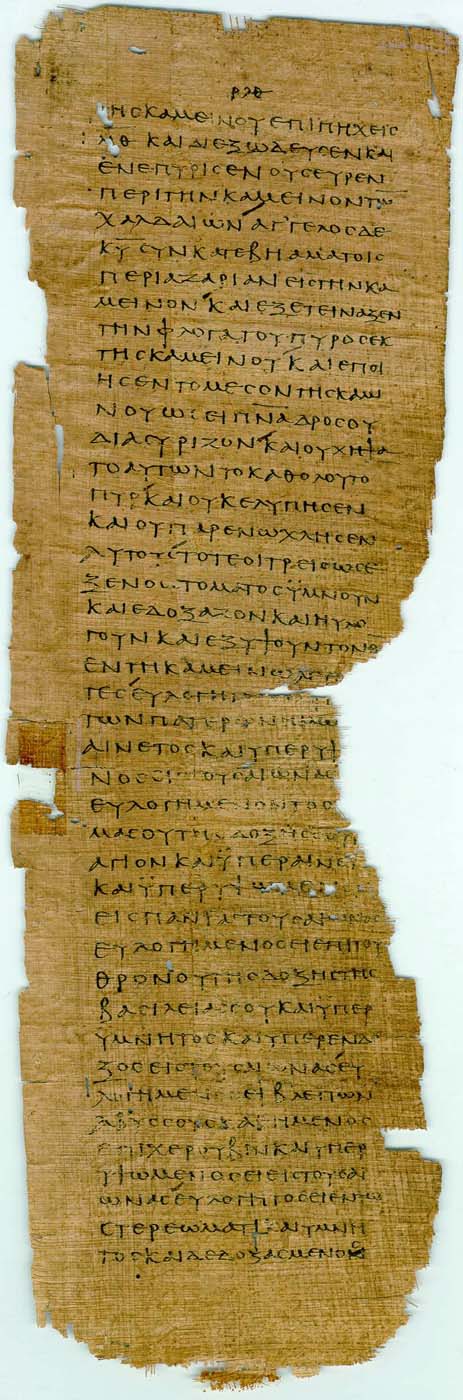 ρλθ
τηςκαμεινουεπιπηχεις
μθ καιδιεξωδευςενκαι
ενεπυριςενουςευρεν
περιτηνκαμεινοντω̅
χαλδαιων αγ'γελοςδε
κ̅υ̅ ςυνκατεβηαματοις
περιαζαριανειςτηνκα
μεινον καιεξετειναξεν
τηνφλογατουπυροςεκ
τηςκαμεινου καιεποι
ηςεντομεςοντηςκαμι
νουωςειπ̅ν̅α̅δροςου
διαςυριζον καιουχηψα
τοαυτωντοκαθολουτο
πυρ καιουκελυπηςεν
καιουπαρενωχληςεν
αυτουςτοτεοιτρειςωςε
ξενος τοματοςϋμνουν
καιεδοξαζονκαιηυλο
γουνκαιεξυψουντονθ̅
εντηκαμεινωλεγο
τεςευλογη
τωνπατερων
αινετοςκαιυπερυψ
νοςε τουςαιωνας
ευλογημενοντοο
μαςουτηςδοξηςςου
αγιονκαιϋπεραινε
καιϋπερυψωμε
ειςπανταςτουςαιωνας
ευλογημενοςειεπιτου
θρονουτηςδοξηςτης
βαςιλειαςςουκαιϋπερ
υμνητοςκαιϋπερενδο
ξοςειςτουςαιωναςευ
λογημενοςειβλεπων
αβυςςουςκαθημενος
επιχερουβινκαιυπερ
υψωμενοςειειςτουςαι
ωναςευλογητοςειεντω
ςτερεωματικαιυμνη
τοςκαιδεδοξαςμενος